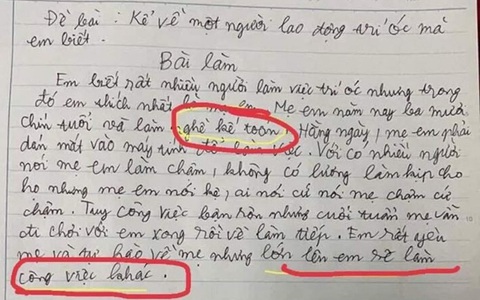 Đề bài : Kể về một người lao động trí óc mà
em biết.
Bài làm
Em biết rất nhiều người làm việc trí óc nhưng trong
đó em thích nhất là mẹ em. Mẹ em năm nay ba mươi
chín tuổi và làm nghề kế toán. Hằng ngày, mẹ em phải
dán mắt vào máy tính để làm việc. Với có nhiều người
nói mẹ em làm chậm, không có lương làm kịp cho
họ nhưng mẹ em nói kệ, ai nói cứ nói mẹ chậm cứ
chậm. Tuy công việc bận rộn nhưng cuối tuần mẹ vẫn
đi chơi với em xong rồi về làm tiếp. Em rất yêu
mẹ và tự hào về mẹ nhưng lớn lên em sẽ làm
công việc khác.